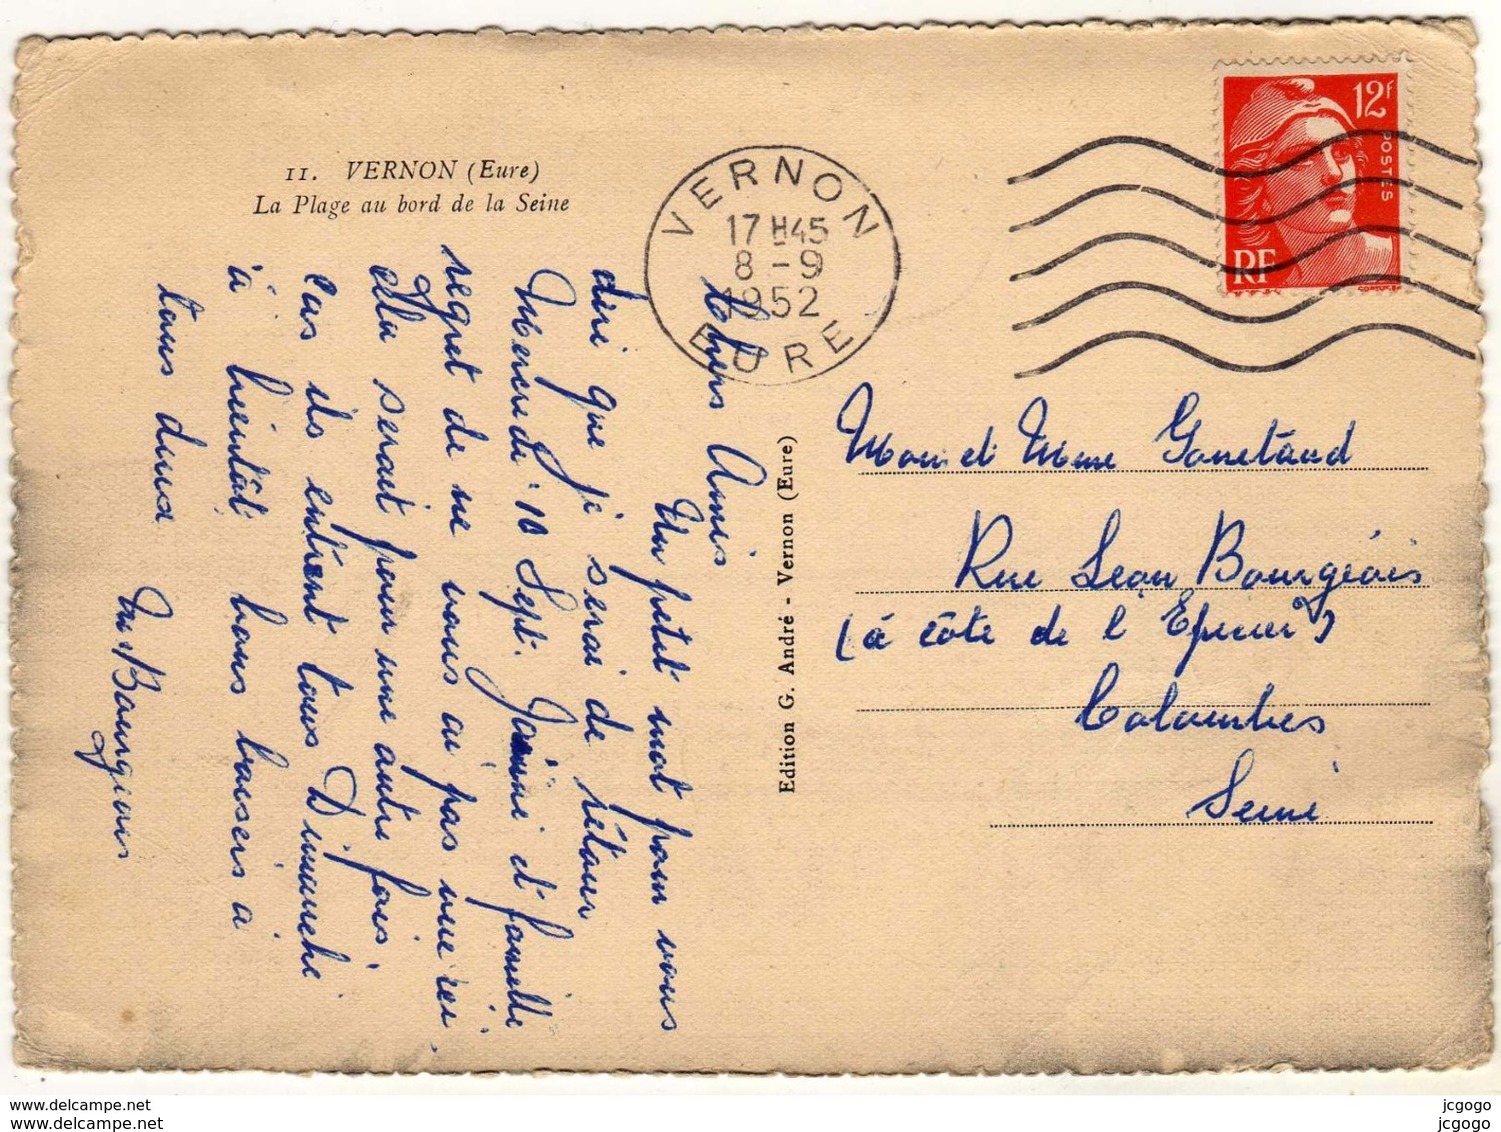 11. VERNON (Eure)
La Plage au bord de la Seine
VERNON
17 H45
8 - 9
1952
EURE
12f
POSTES
RF
Chers Amis
Un petit mot pour vous
dire que je serai de rétour
Mercredi 10 Sept. Janine et famille
regret de ne vous avoir pas vue ici.
Cela serait pour une autre fois,
Cas ils entrent tous Dimanche
à bientôt bons baisers à
tous deux
Me Bourgeois
Edition G. André - Vernon (Eure)
Mon et Mme
Rue Léon Bourgeois
(à côte de l'Epicier)
Colombes
Seine
www.delcampe.net
www.delcampe.net
jcgogo
jcgogo